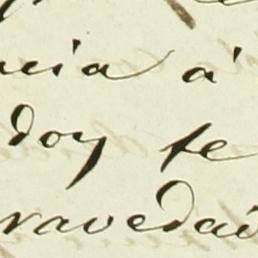 ncia á
doy fe
ravedai